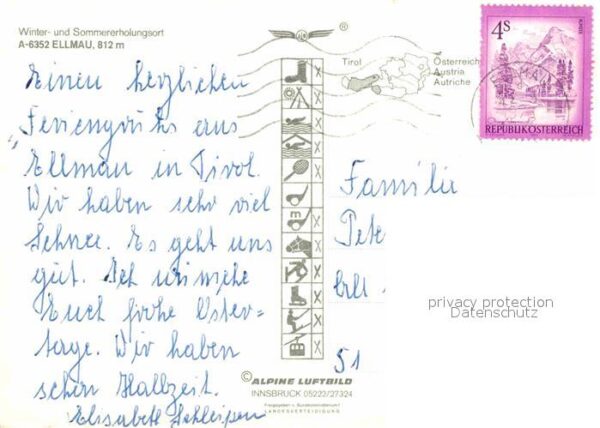 Winter- und Sommererholungsort
A-6352 ELLMAU, 812 m
Einen herzlichen
Feriengruß aus
Ellmau in Tirol.
Wir haben sehr viel
Schnee. Es geht uns
gut. Ich wünsche
Euch frohe Oster-
tage. Wir haben
schon Halbzeit.
Elisabeth
Tirol
Österreich
Austria
Autriche
4S
REPUBLIK ÖSTERREICH
Familie
Pete
51
privacy protection
Datenschutz
© ALPINE LUFTBILD
INNSBRUCK 05223/27324
LANDESVERTEIDIGUNG